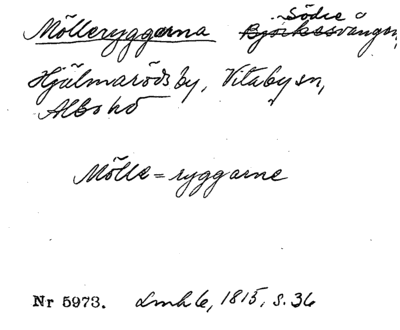 Mölleryggarna Södre
Hjälmaröds by, Vitaby sn,
Albo hd
Mölle=ryggarne
Nr 5973. Lmh 6, 1815, s. 36